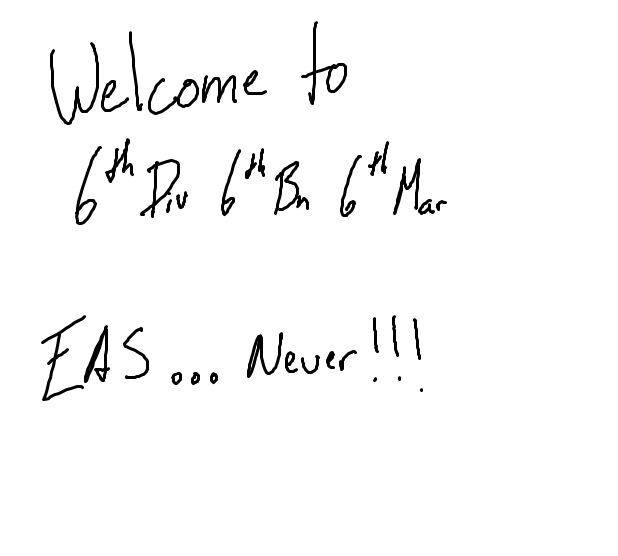 Welcome to
6th Div 6th Bn 6th Mar
EAS... Never!!!